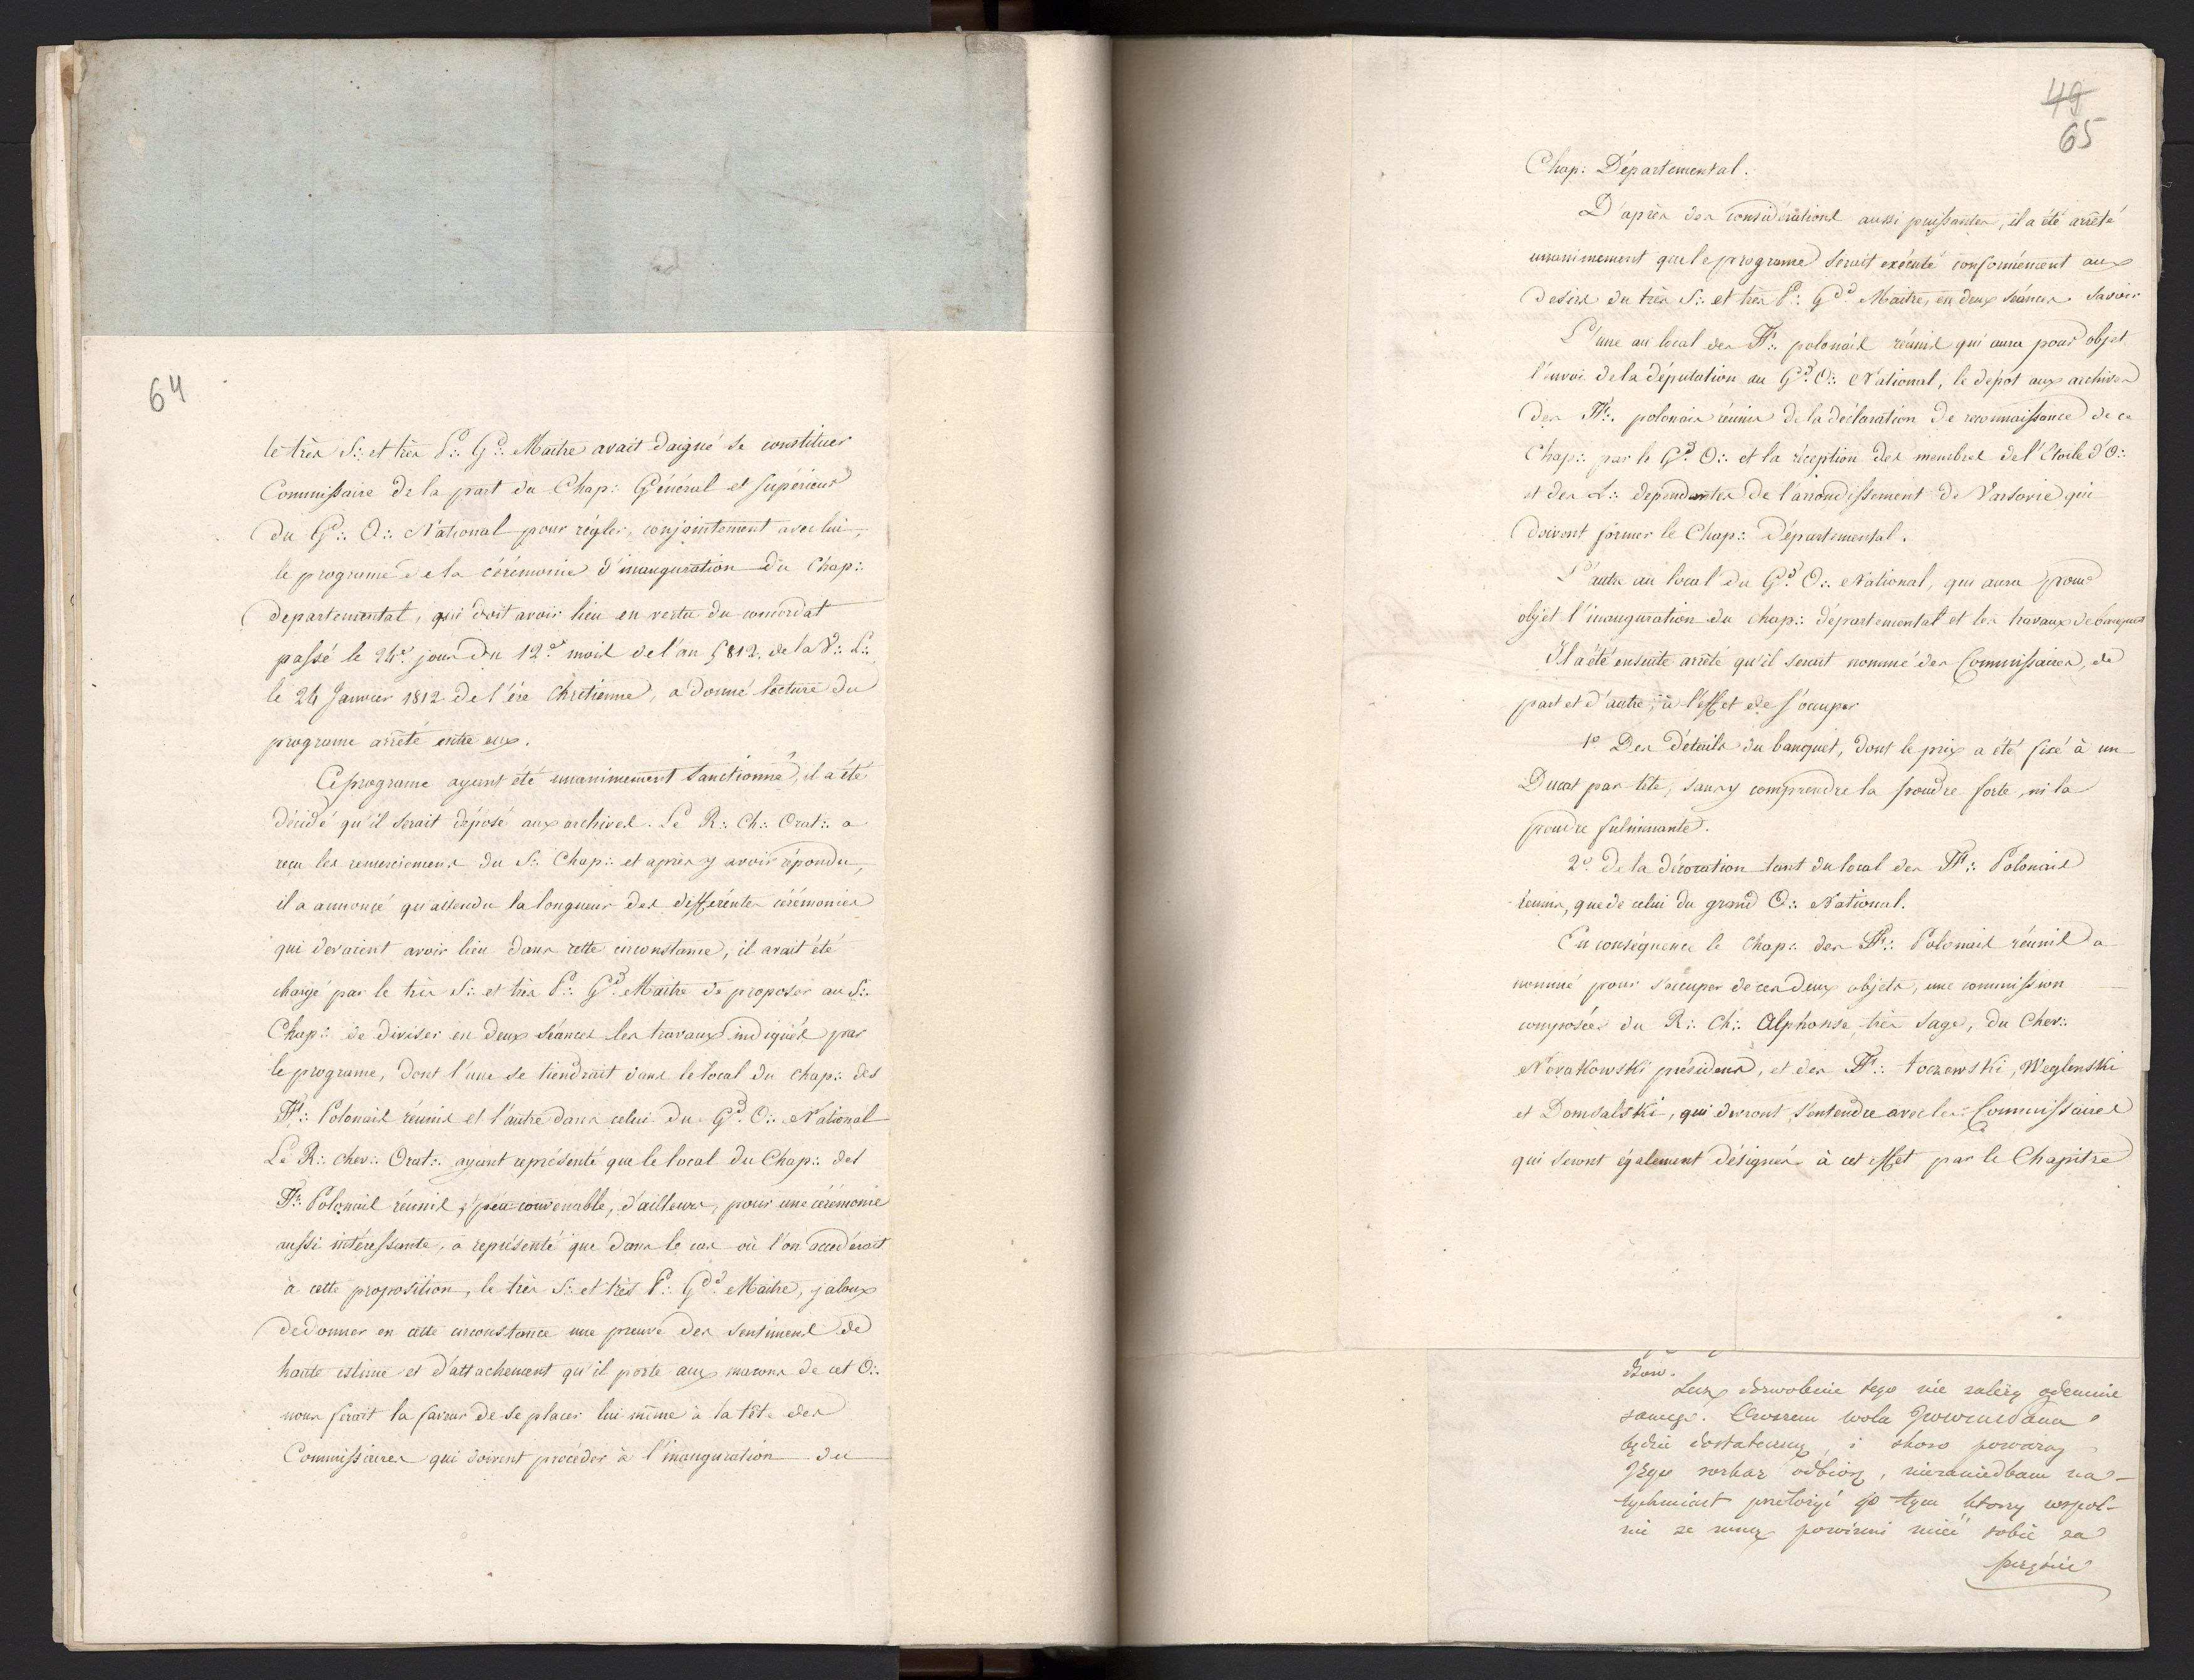 64
le très S∴ et très P∴ G∴ Maitre avait daigné se constituer
Commissaire de la part du Chap: Général et supérieur
du G∴ O∴ National pour régler, conjointement avec lui,
le programe de la cérémonie d'inauguration du Chap∴
departemental, qui doit avoir lieu en vertu du concordat
passé le 24e. jour du 12e. mois de l'an 5812. de la V∴ L∴
le 24 Janvier 1812 de l'ére chrétienne, a donné lecture du
programe arrêté entre eux.
Ce programe ayant été unanimement sanctionné, il a été
décidé qu'il serait déposé aux archives. Le R∴ Ch∴ Orat∴ a
reçu les remerciemens du S∴ Chap∴ et après y avoir répondu,
il a annonçé qu'attendu la longueur des différentes cérémonies
qui devaient avoir lieu dans cette circonstance, il avait été
chargé par le très S∴ et très P∴ Gd. Maitre de proposer au S∴
Chap∴ de diviser en deux séances les travaux indiqués par
le programe, dont l'une se tiendrait dans le local du Chap∴ des
FF∴ Polonais réunis et l'autre dans celui du Gd. O∴ National
Le R∴ Chev∴ Orat∴ ayant représenté que le local du Chap∴ des
FF∴ Polonais réunis, peu convenable, d'ailleurs, pour une cérémonie
aussi intéressante, a représenté que dans le cas où l'on accéderait
à cette proposition, le très S∴ et très P∴ Gd. Maitre, jaloux
de donner en cette circonstance une preuve des sentimens de
haute estime et d'attachement qu'il porte aux maçons de cet O∴
nous ferait la faveur de se placer lui même à la tête des
Commissaires qui doivent procéder à l'inauguration du
49
65
Chap: Départemental.
D'après des considérations aussi puissantes, il a été arrêté
unanimement que le programe serait exécuté conformément aux
desirs du très S∴ et très P∴ Gd. Maitre, en deux séances. Savoir
L'une au local des FF∴ polonais réunis qui aura pour objet
l'envoi de la députation au Gd. O∴ National, le dépot aux archives
des FF∴ polonais réunis de la déclaration de reconnaissance de ce
Chap∴ par le Gd. O∴ et la réception des membres de l'Etoile d'O∴
et des L∴ dependantes de l'arrondissement de Varsovie qui
doivent former le Chap∴ Départemental.
L'autre au local du Gd. O∴ National, qui aura pour
objet l'inauguration du Chap∴ départemental et les travaux de banquet
Il a été ensuite arrêté qu'il serait nommé des Commissaires, de
part et d'autre, à l'effet de s'occuper
1o. Des détails du banquet, dont le prix a été fixé à un
Ducat par tête, sans y comprendre la poudre forte, ni la
poudre fulminante.
2o. De la décoration tant du local des FF∴ Polonais
réunis, que de celui du grand O∴ National.
En conséquence le Chap∴ des FF∴ Polonais réunis a
nommé pour s'occuper de ces deux objets, une commission
composée du R∴ Ch∴ Alphonse très sage, du Chev∴
Novakowski président, et des FF∴ Toczewski, Weglenski
et Domdalski, qui devront s'entendre avec les Commissaires
qui seront également désignés à cet effet par le Chapitre
Lecz dozwolenie tego nie zależy odemnie
samego. Owszem wola
będzie dostateczną, i skoro
Jego rozkaz odbiorę, niezaniedbam na-
tychmiast przełożyć go tym ktorzy wspol-
nie ze mną powinni mieć sobie za